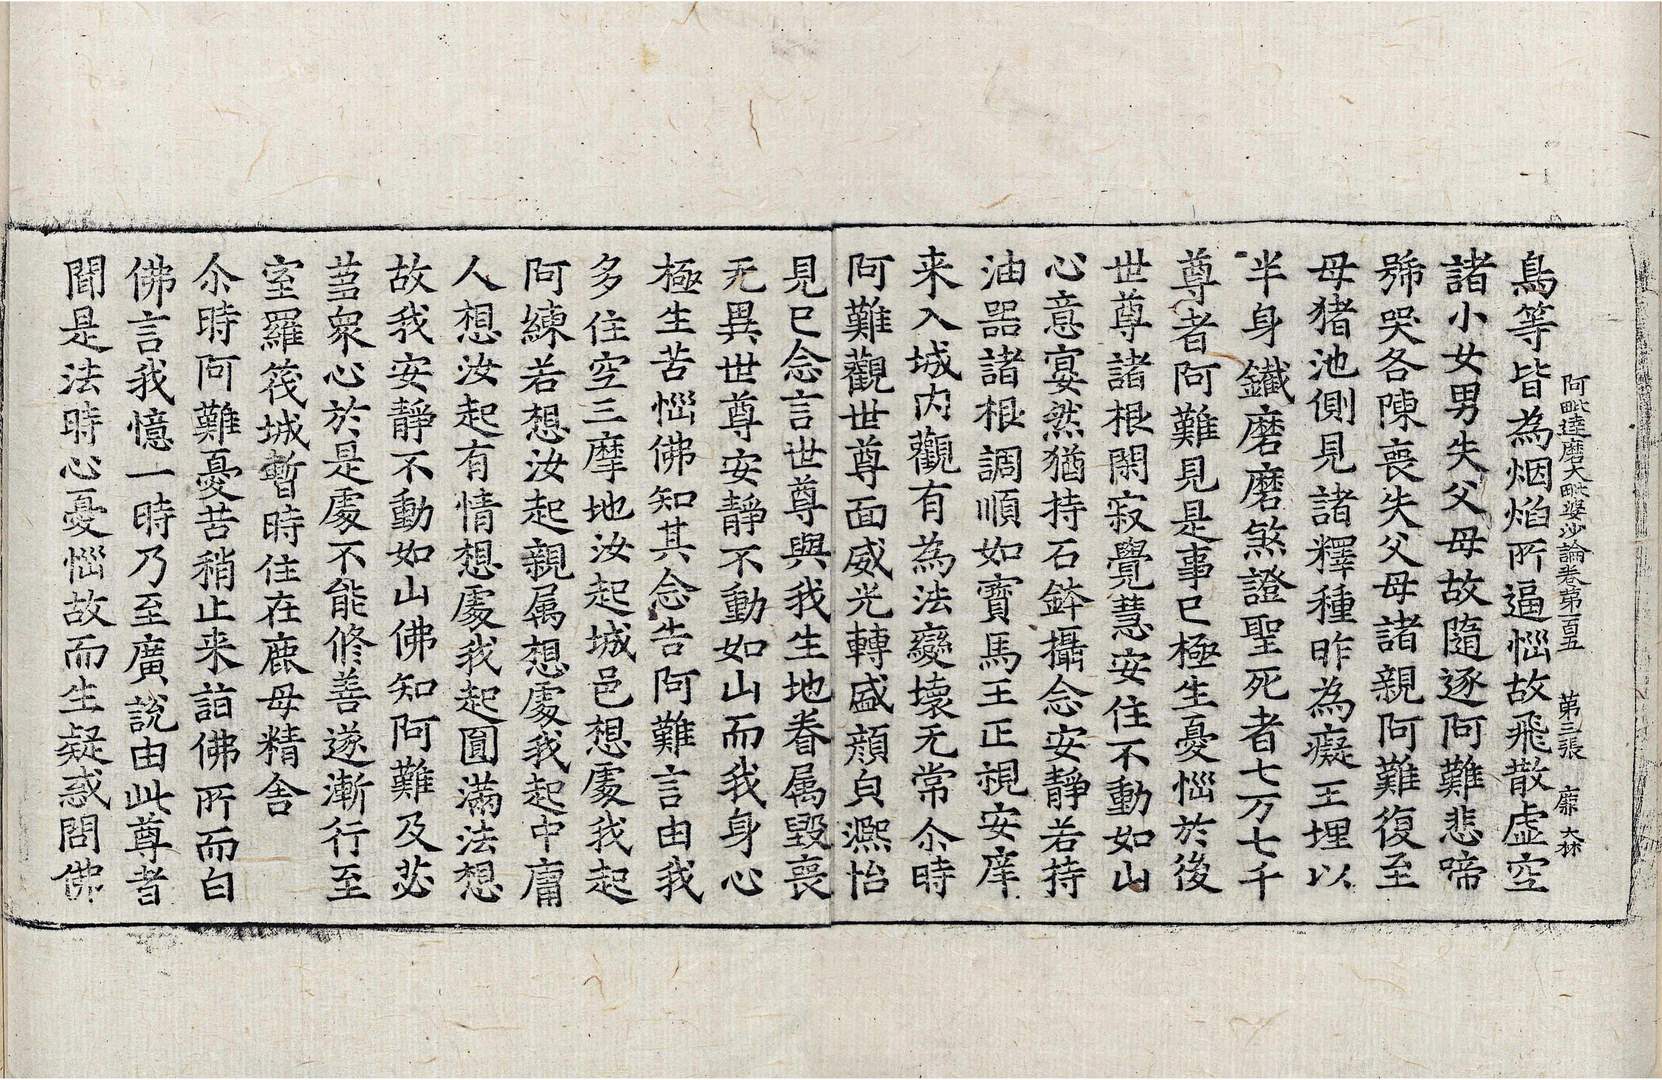 阿毗達磨大毗婆沙論卷第一百五 第三張 靡 大林
鳥等皆為烟焰所逼惱故飛散虛空
諸小女男失父母故隨逐阿難悲啼
號哭各陳喪失父母諸親阿難復至
母猪池側見諸釋種昨為癡王埋以
半身鐵磨磨煞證聖死者七万七千
尊者阿難見是事已極生憂惱於後
世尊諸根閑寂覺慧安住不動如山
心意宴然猶持石鉢攝念安靜若持
油器諸根調順如寶馬王正視安庠
来入城内觀有為法變壞无常尒時
阿難觀世尊面威光轉盛顔皃凞怡
見已念言世尊與我生地眷属毀喪
无異世尊安靜不動如山而我身心
極生苦惱佛知其念告阿難言由我
多住空三摩地汝起城邑想處我起
阿練若想汝起親属想處我起中庸
人想汝起有情想處我起圓滿法想
故我安靜不動如山佛知阿難及苾
蒭衆心於是處不能修善遂漸行至
室羅筏城暫時住在鹿母精舍
尒時阿難憂苦稍止来詣佛所而白
佛言我憶一時乃至廣說由此尊者
聞是法時心憂惱故而生疑惑問佛